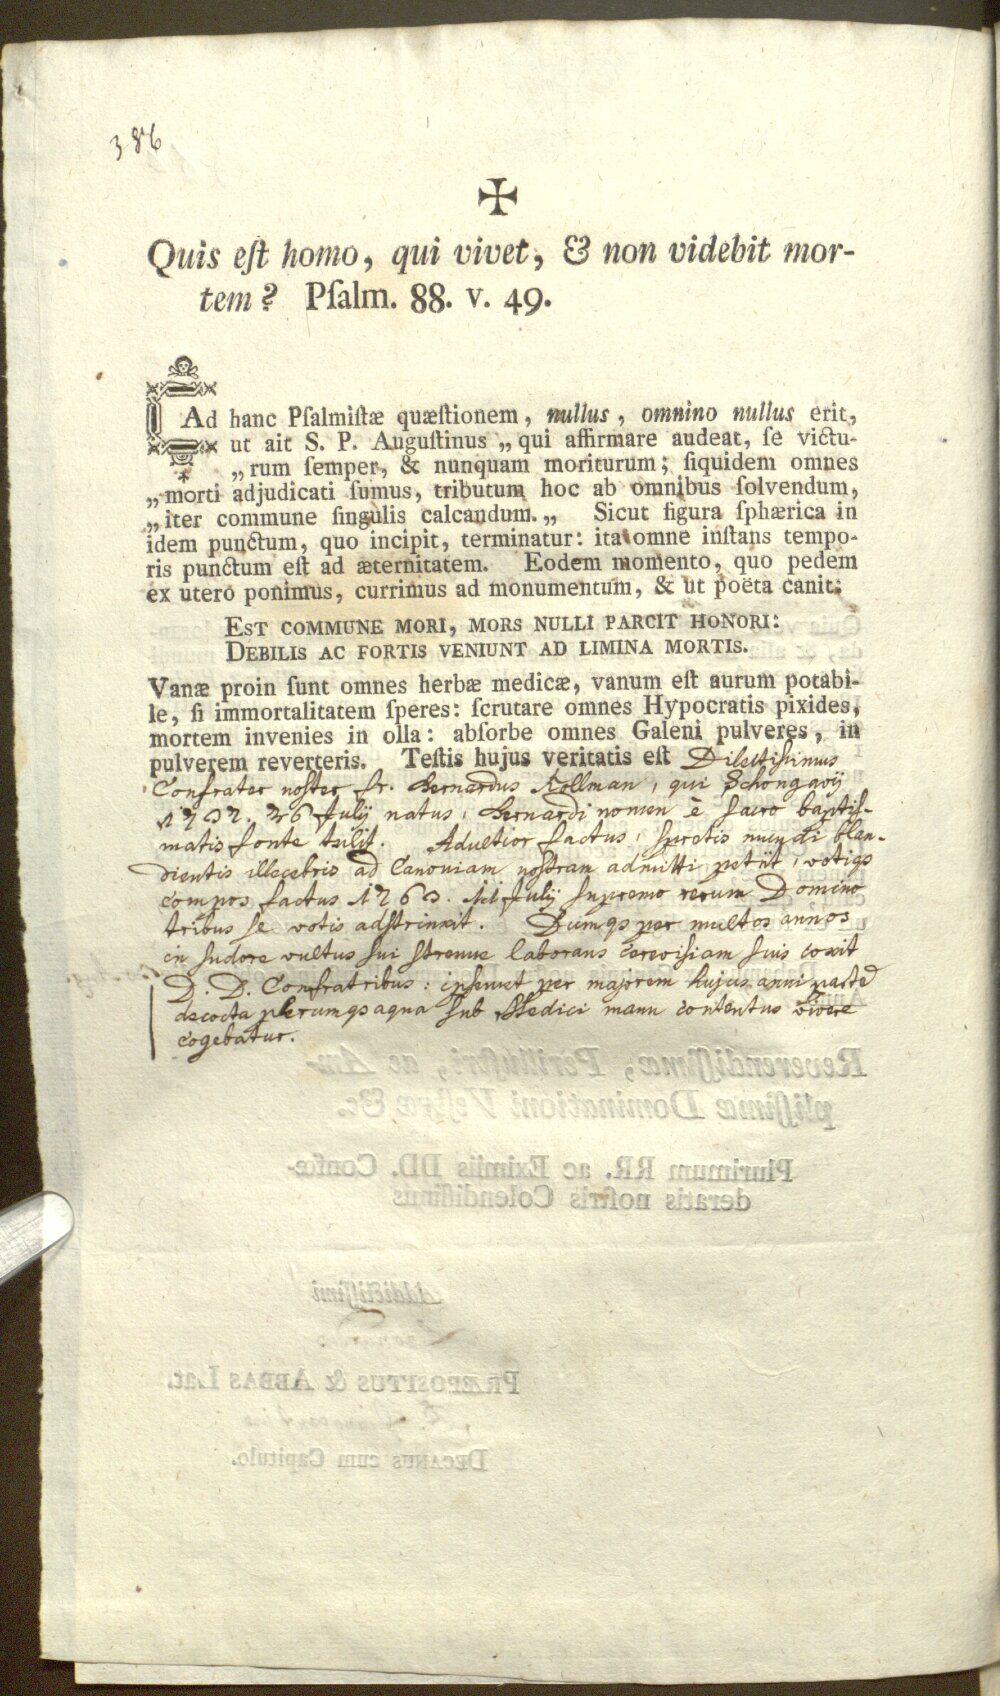 386
✠
Quis eſt homo, qui vivet, & non videbit mor-
tem? Pſalm. 88. v. 49.
Ad hanc Pſalmiſtæ quæſtionem, nullus, omnino nullus erit,
ut ait S. P. Auguſtinus „qui affirmare audeat, ſe victu-
„rum ſemper, & nunquam moriturum; ſiquidem omnes
„morti adjudicati ſumus, tributum hoc ab omnibus ſolvendum,
„iter commune ſingulis calcandum.„ Sicut figura ſphærica in
idem punctum, quo incipit, terminatur: ita omne inſtans tempo-
ris punctum eſt ad æternitatem. Eodem momento, quo pedem
ex utero ponimus, currimus ad monumentum, & ut poëta canit:
EST COMMUNE MORI, MORS NULLI PARCIT HONORI:
DEBILIS AC FORTIS VENIUNT AD LIMINA MORTIS.
Vanæ proin ſunt omnes herbæ medicæ, vanum eſt aurum potabi-
le, ſi immortalitatem ſperes: ſcrutare omnes Hypocratis pixides,
mortem invenies in olla: abſorbe omnes Galeni pulveres, in
pulverem reverteris. Teſtis hujus veritatis eſt Dilectiſsimus
Confrater noſter fr. Bernardus Kollman, qui Schongavij
26 Julij natus, Bernardi nomen è ſacro baptiſ-
matis fonte tulit. Adultior factus, ſpretis mundi blan-
dientis illecebris ad Canoniam noſtram admitti petijt, votiqs
compos factus Julij ſupremo rerum Domino
tribus ſe votis adſtrinxit. Dumqs per multos annos
in ſudore vultus ſui ſtrenue laborans cereviſiam ſuis coxit
D. D. Confratribus: ipſemet per majorem hujus anni partē
decocta plerumqs aqua ſub Medici manu contentus vivere
cogebatur.